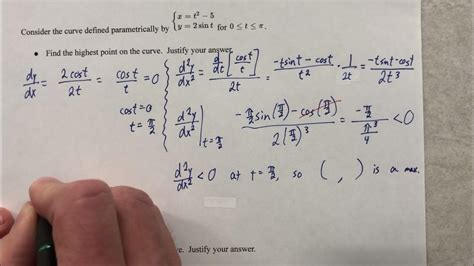 Consider the curve defined parametrically by { x = t² − 5
y = 2 sin t for 0 ≤ t ≤ π.
• Find the highest point on the curve. Justify your answer.
dy/dx = 2cost/2t = cost/t = 0
cost = 0
t = π/2
d²y/dx² = d/dt [cost/t] / 2t = (−tsint − cost)/t² · 1/2t = (−tsint − cost)/2t³
d²y/dx² | t=π/2 = (−π/2 sin(π/2) − cos(π/2)) / 2(π/2)³ = (−π/2)/(π³/4) < 0
d²y/dx² < 0 at t = π/2, so ( , ) is a max.
ve. Justify your answer.